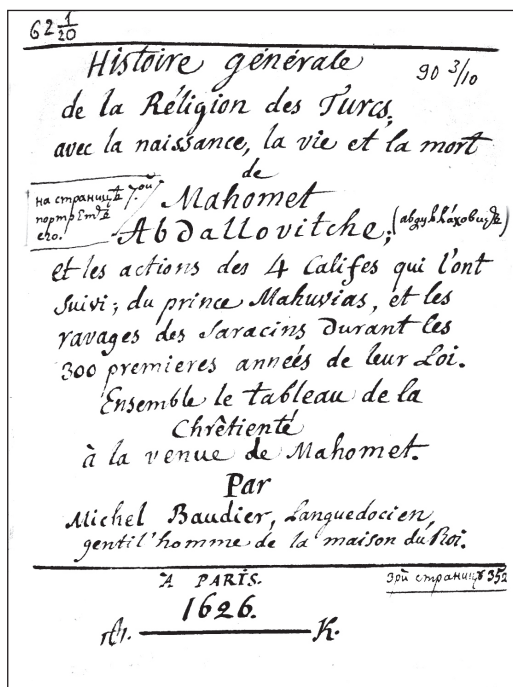 62 1/20
Histoire générale
90 3/10
de la Réligion des Turcs,
avec la naissance, la vie et la mort
de
на страницѣ 7.ой
портретъ
его.
Mahomet
Abdallovitche;
et les actions des 4 Califes qui l'ont
suivi; du prince Mahuvias, et les
ravages des Saracins Durant les
300 premieres années de leur Loi.
Ensemble le tableau de la
Chrêtienté
à la venue de Mahomet.
Par
Michel Baudier, Languedocien,
gentil'homme de la maison du Roi.
A PARIS.
зри страницу 352
1626.
K.